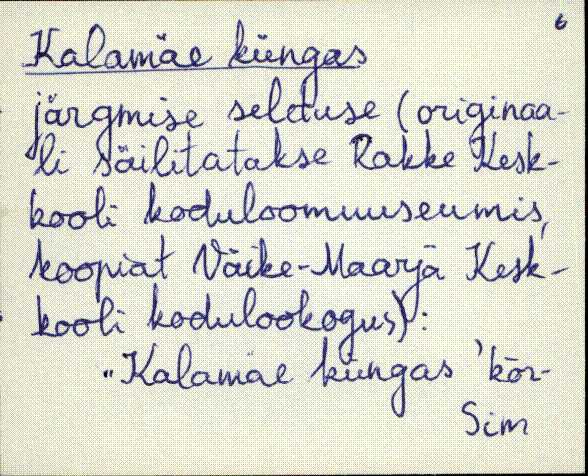 6
Kalamäe küngas
järgmise selduse (originaa-
li säilitatakse Rakke Kesk-
kooli koduloomuuseumis,
koopiat Väike-Maarja Kesk-
kooli kodulookogus):
"Kalamäe küngas 'kõr-
Sim